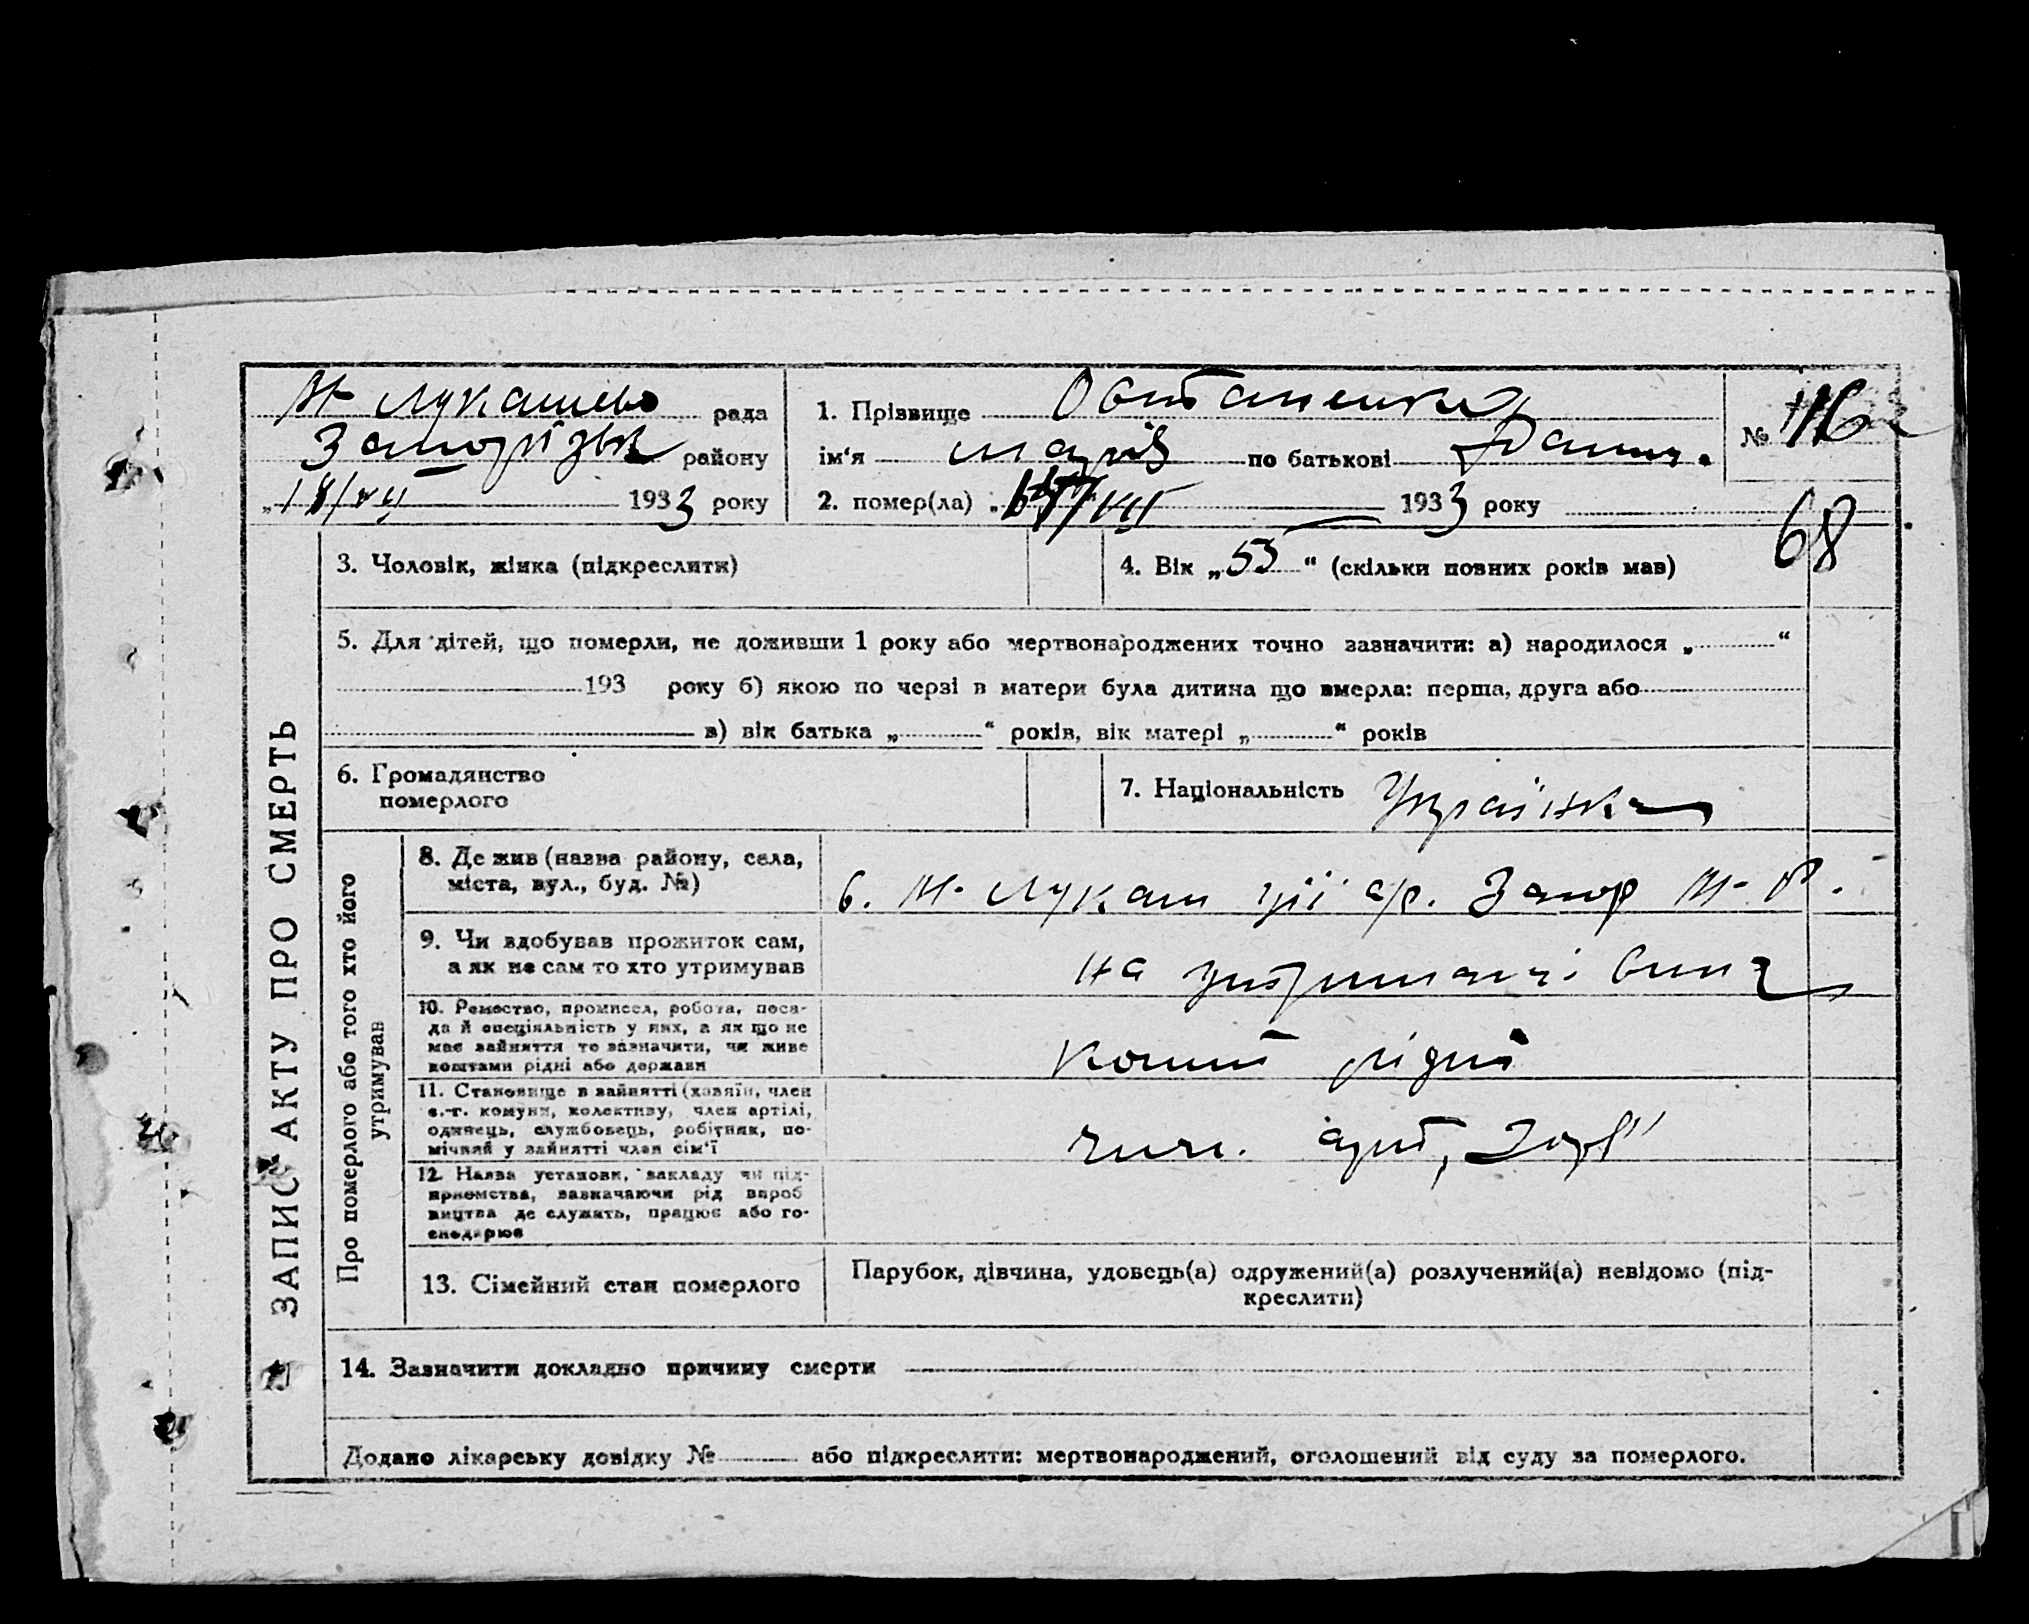 Н Лукашево рада
Запоріжзьк району
„18/VII 1933 року
1. Прізвище Овтаненко
№ 116
ім‘я марія по батькові Данил.
2. помер(ла) „ /VII 1933 року
68
ЗАПИС АКТУ ПРО СМЕРТЬ
3. Чоловік, жінка (підкреслити)
4. Вік „53“ (скільки повних років мав)
5. Для дітей, що померли, не доживши 1 року або мертвонароджених точно зазначити: а) народилося „ “
193 року б) якою по черзі в матери була дитина що вмерла: перша, друга або
в) вік батька „ “ років, вік матері „ “ років
6. Громадянство
померлого
7. Національність Українка
Про померлого або того хто його
утримував
8. Де жив (назва району, села,
міста, вул., буд. №)
в. Н- Лукаш ції с/р. Запор Н- Р.
9. Чи здобував прожиток сам,
а як не сам то хто утримував
на утриманні
10. Ремество, промисел, робота, поса-
да й спеціяльність у них, а як що не
має зайняття то зазначити, чи живе
коштами рідні або держави
кошт рідні
11. Становище в зайнятті (хазяїн, член
с.-г. комуни, колективу, член артілі,
одинець, службовець, робітник, по-
мічний у зайнятті член сім‘ї
член. арт,
12. Назва установи, закладу чи під-
приємства, зазначаючи рід вироб
ництва де служить, працює або го-
сподарює
13. Сімейний стан померлого
Парубок, дівчина, удовець(а) одружений(а) розлучений(а) невідомо (під-
креслити)
14. Зазначити докладно причину смерти
Додано лікарську довідку № або підкреслити: мертвонароджений, оголошений від суду за померлого.